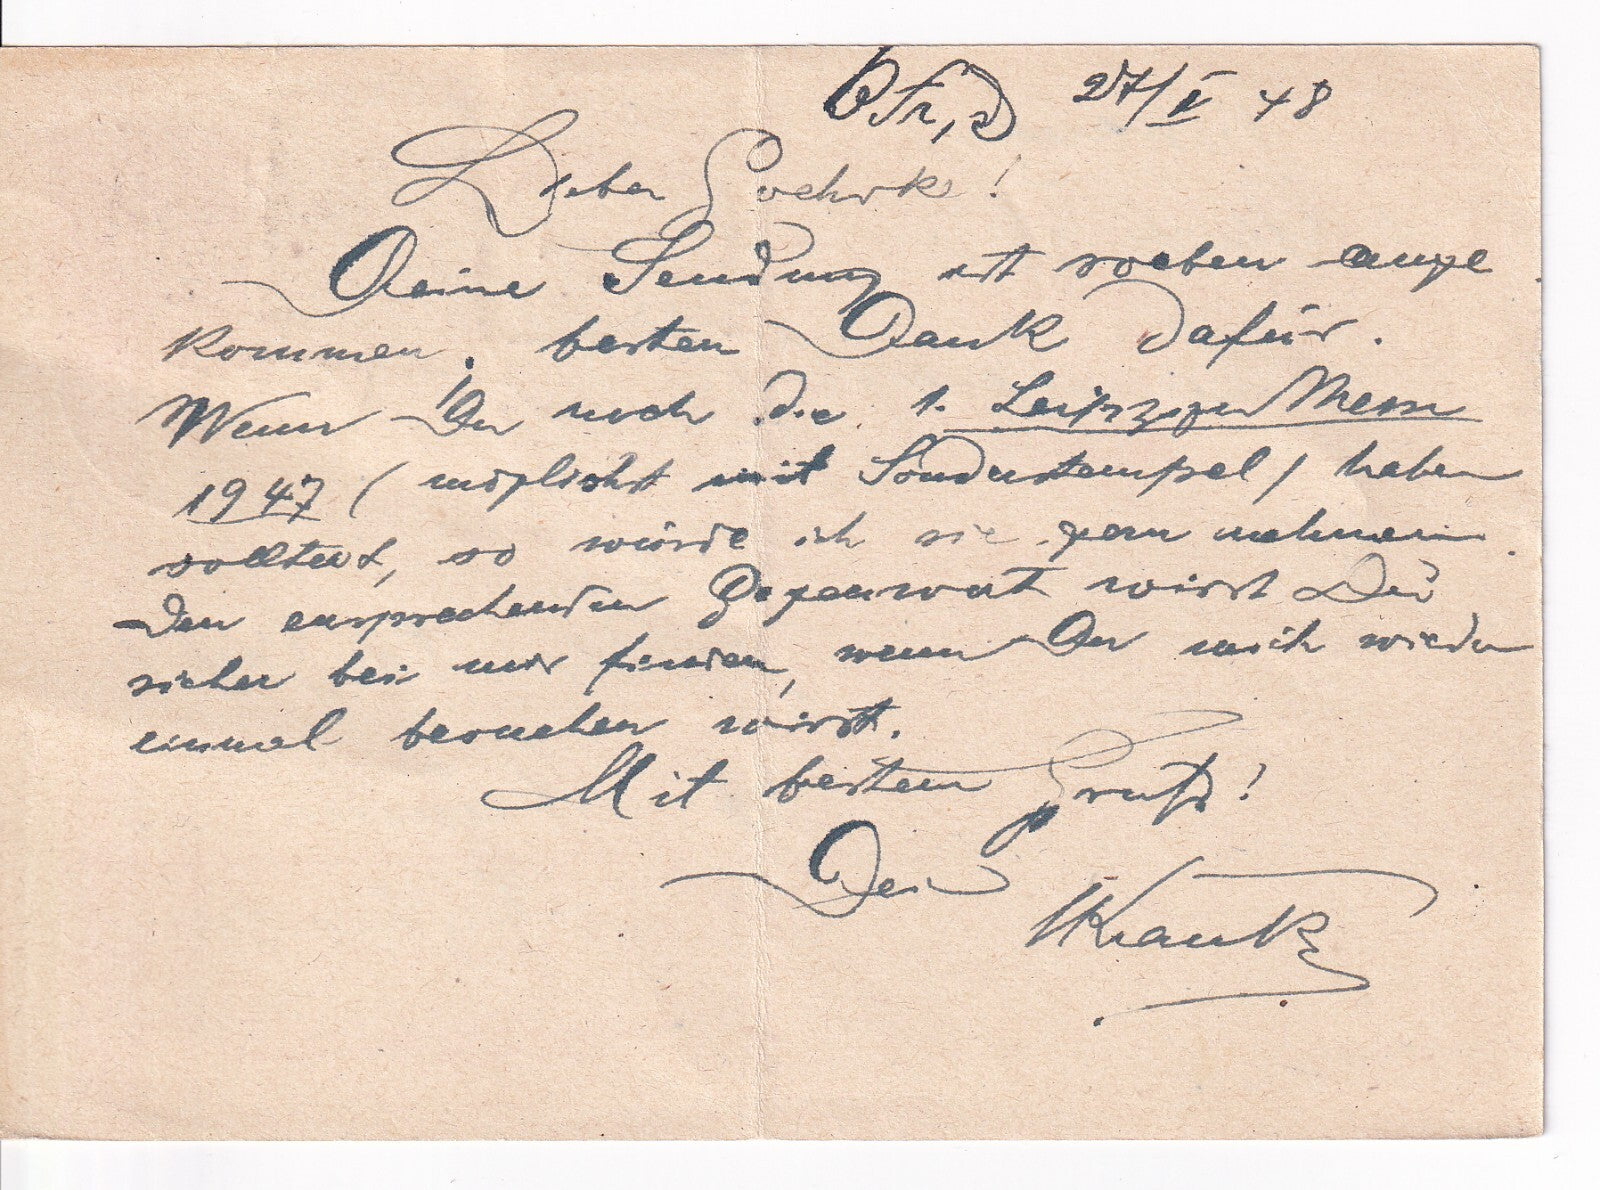 27/V 48
Lieber
Deine Sendung ist soeben ange
kommen, besten Dank dafür.
Wenn Du noch die 1. Leipziger Messe
1947 (möglichst mit Sonderstempel) haben
solltest, so würde ich sie gern nehmen.
Den ensprechenden Gegenwert wirst Du
sicher bei mir finden, wenn Du mich wieder
einmal besuchen wirst.
Mit bestem Gruß!
Dein